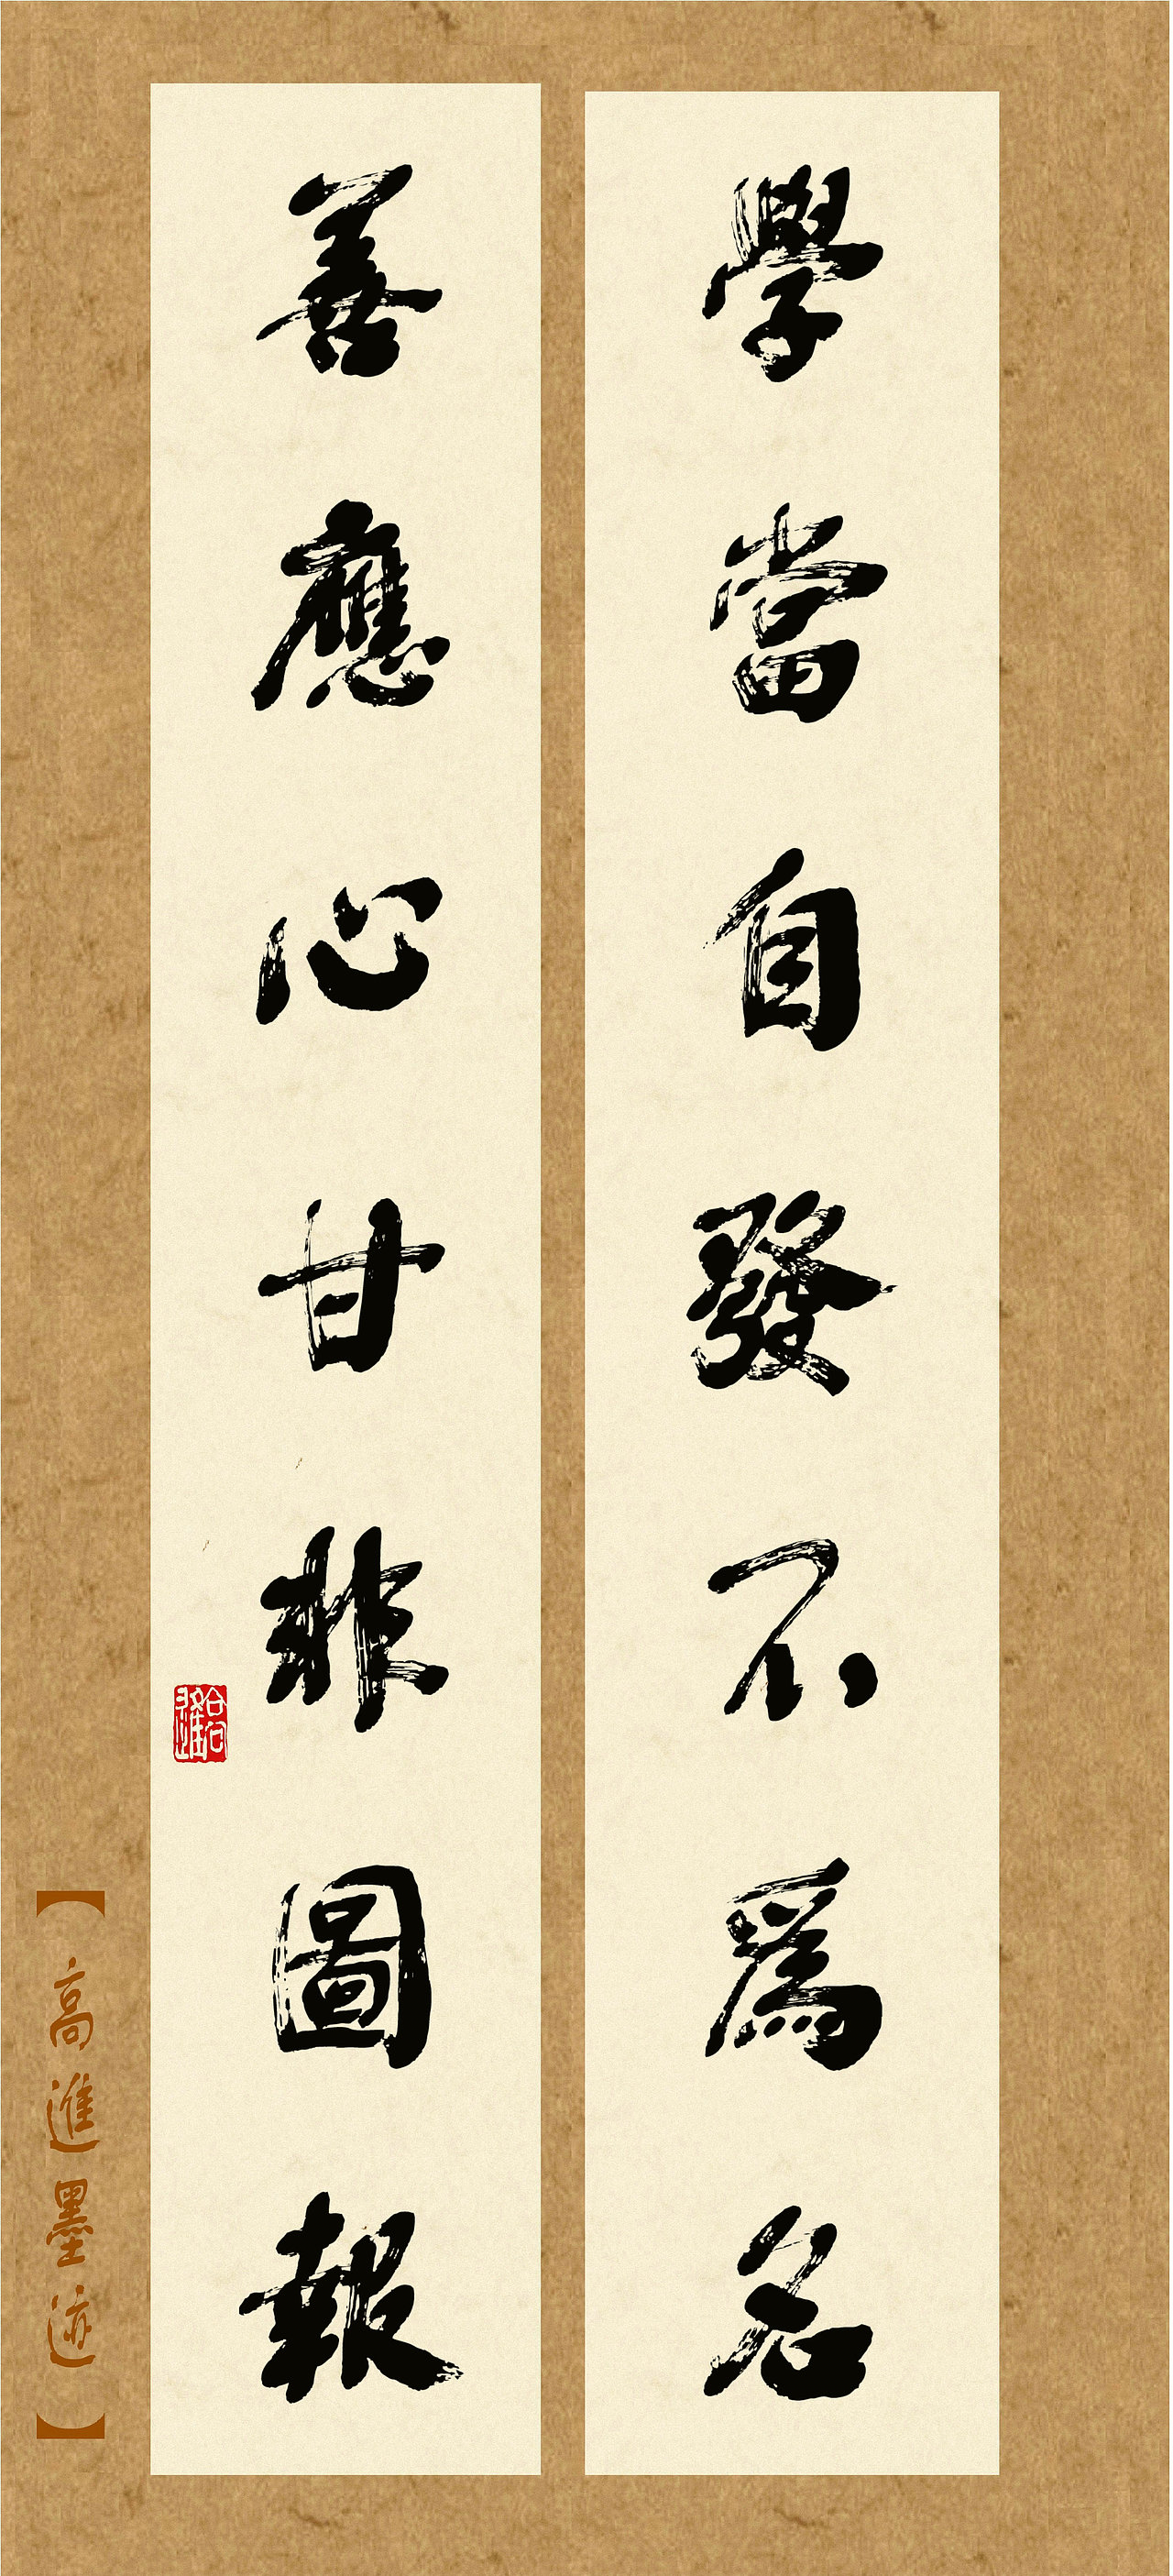 學當自發不爲名
善應心甘非圖報
高進
【高進墨迹】